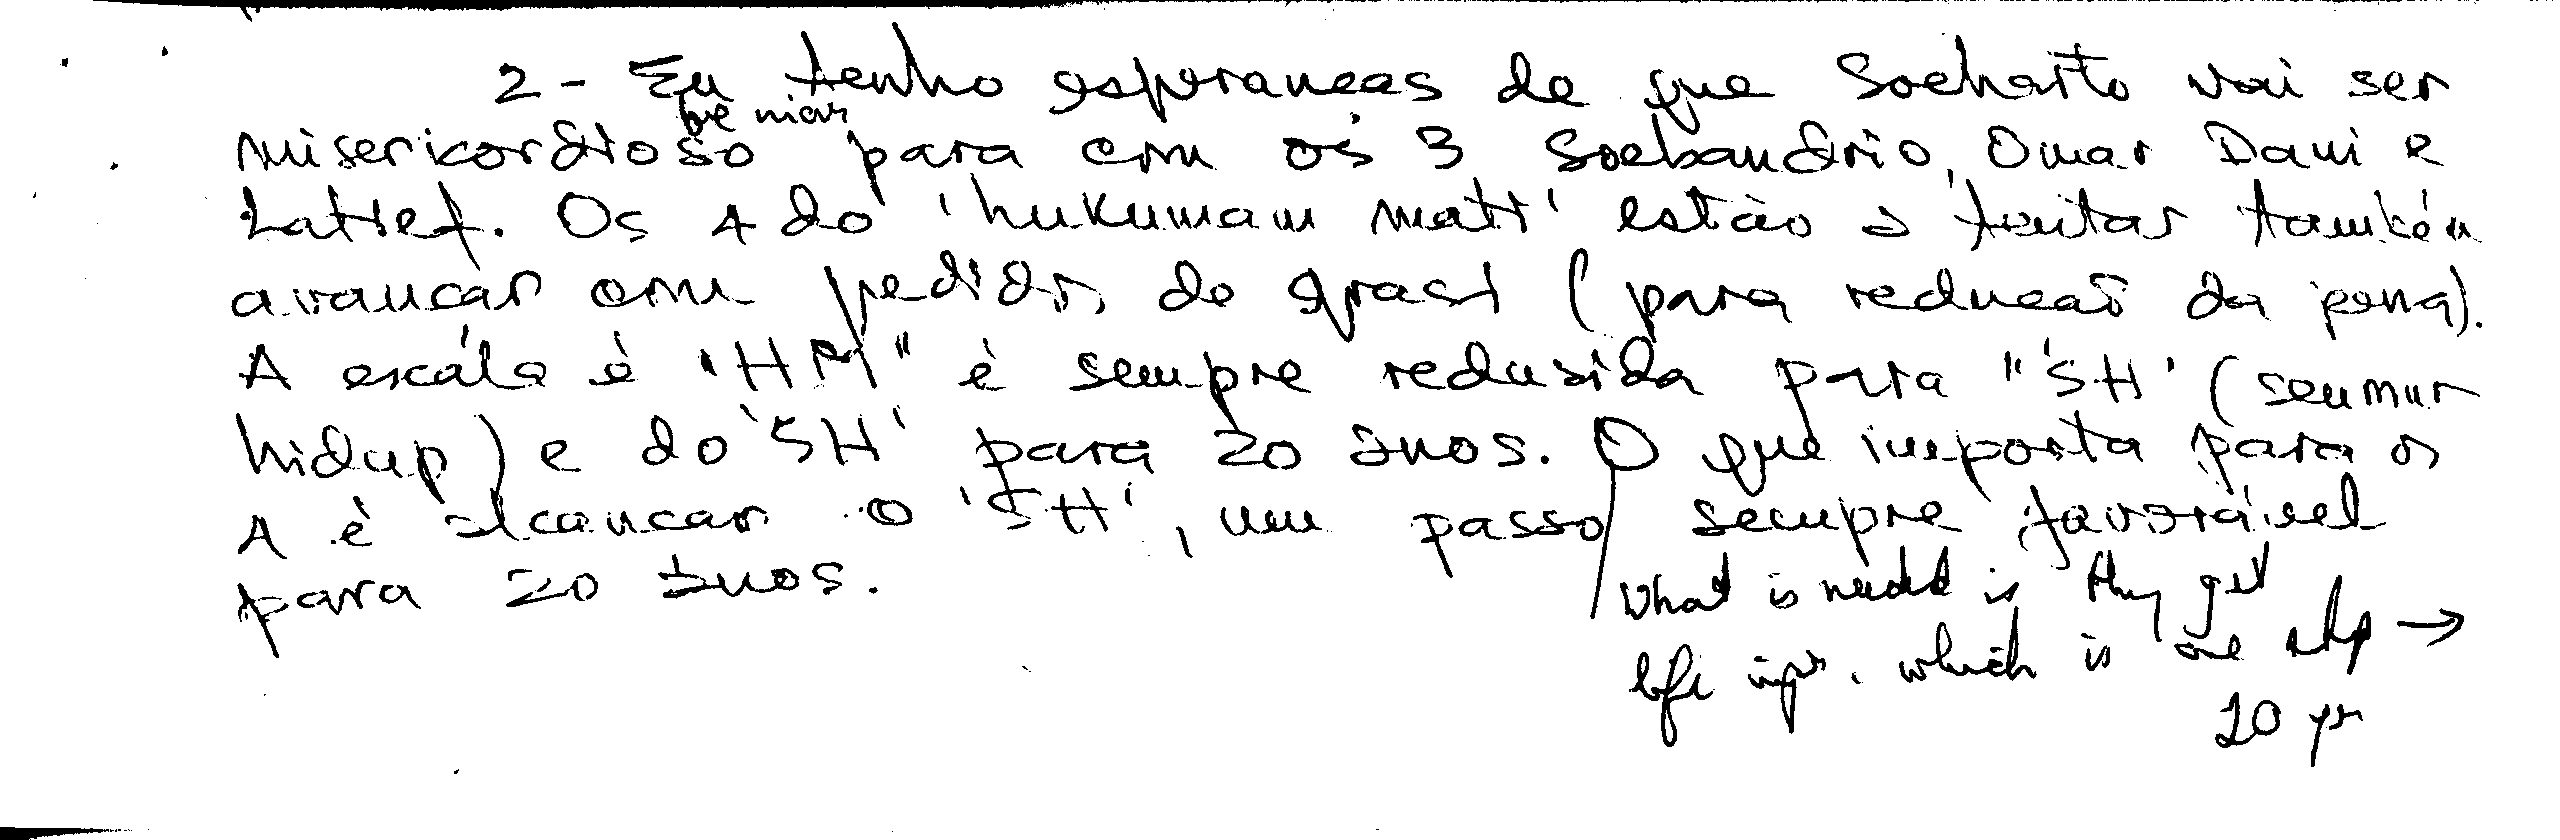 2 - Eu tenho esperancas de que Soeharto vai ser
misericordioso para com os 3 Soebandrio, Omar Dani e
Latief. Os 4 do 'hukuman mati' estão a tentar também
avancar com pedidos de grasi (para reducaõ da pena).
A escála é "HM" é sempre redusida para "SH' (seumur
hidup) e do 'SH' para 20 anos. O que importa para os
4 é alcancar o 'SH', um passo sempre favorável
para 20 anos.
What is needed is they get
life impr. which is one step →
20 yr